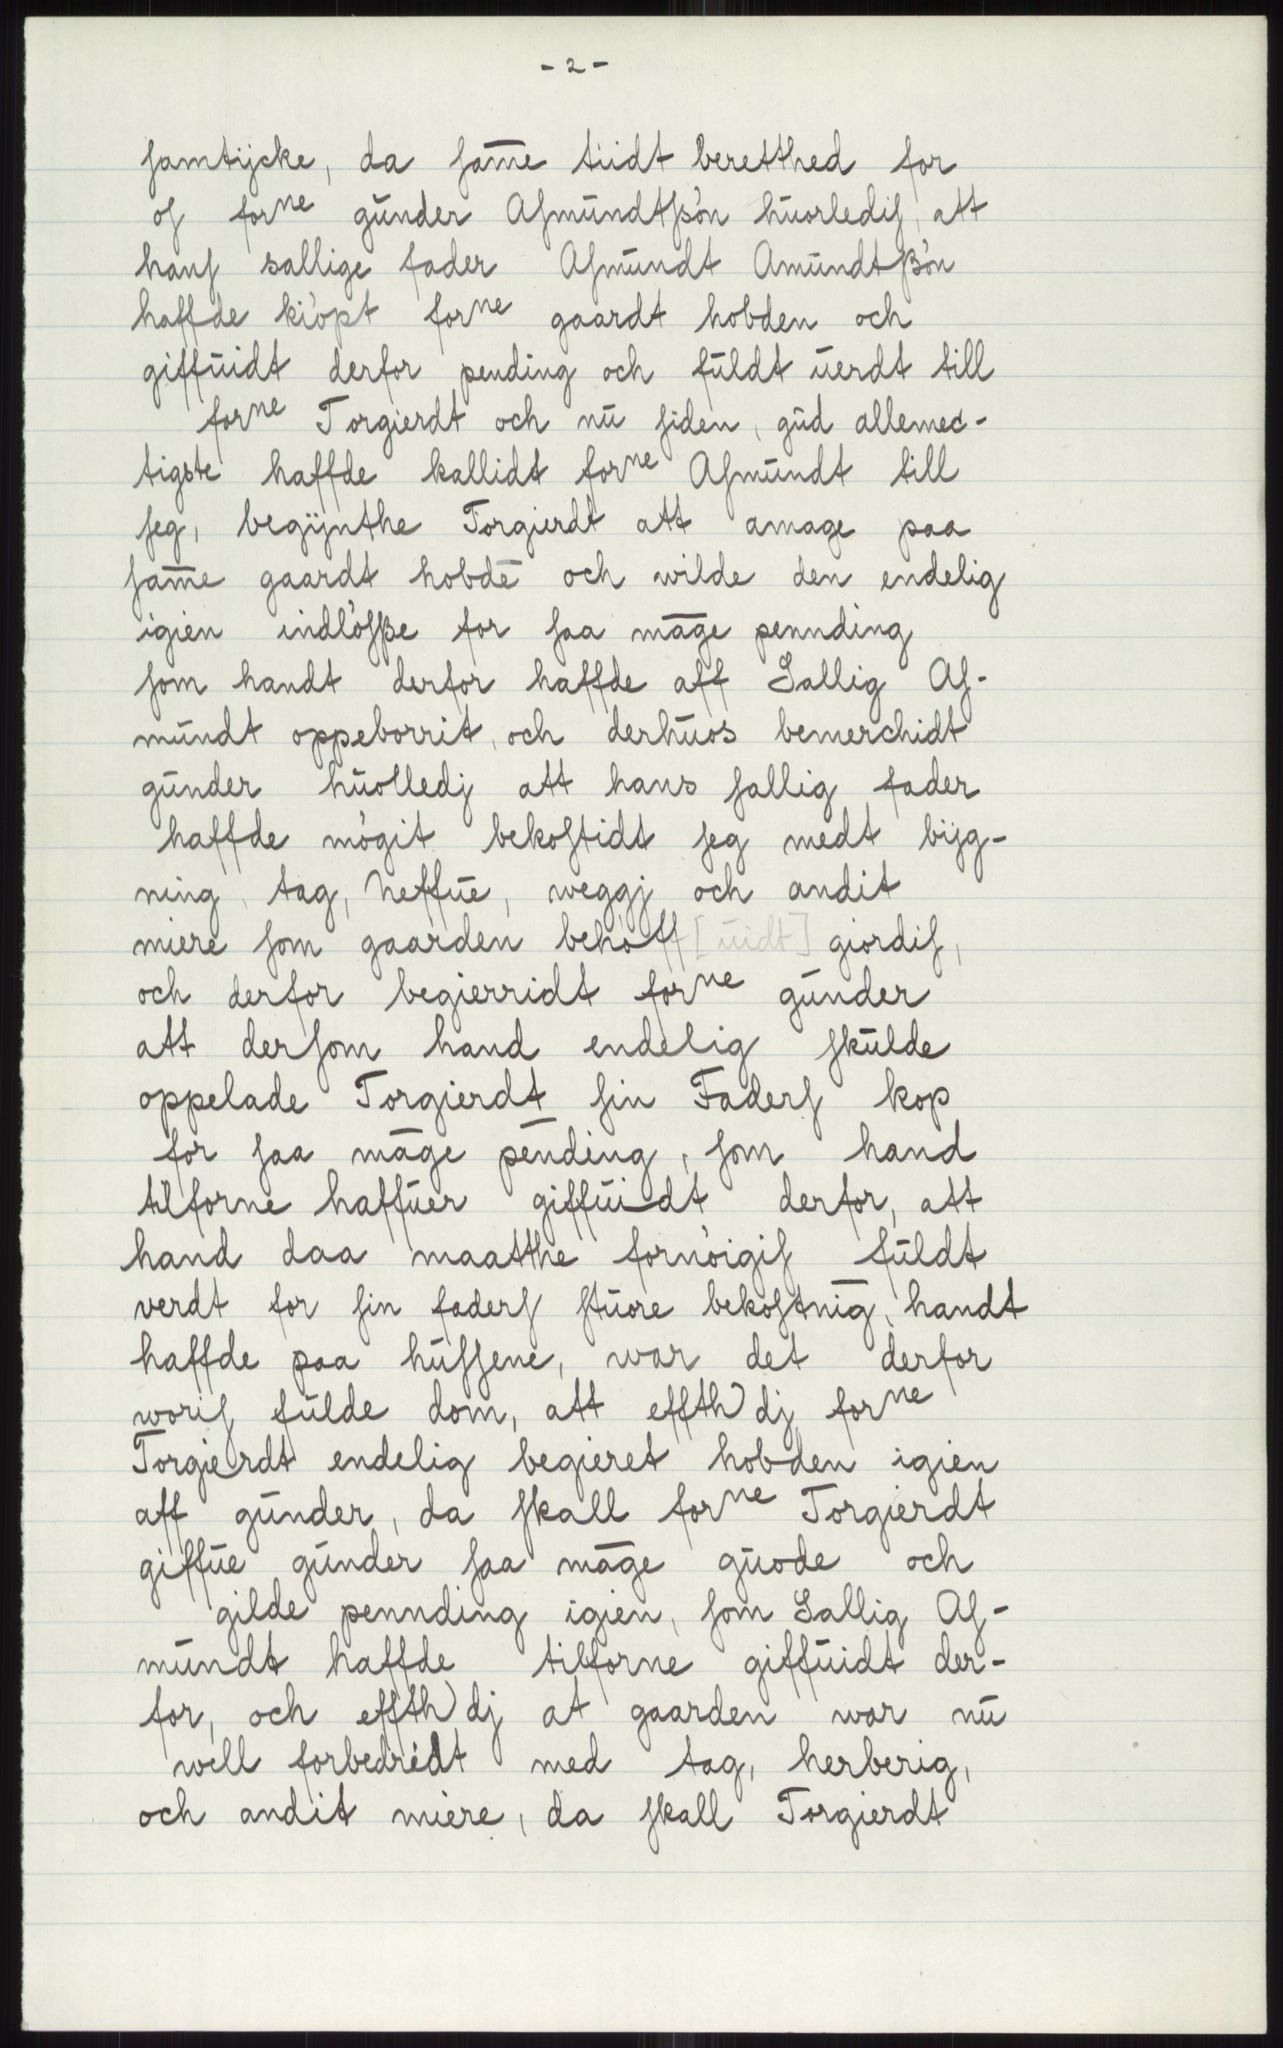 - 2 -
ſamtÿcke, da ſam̄e tiidt beretthed for
oſ forne gūnder Aſmūndtſßön hūorlediſ, att
hanſ sallige fader Aſmūndt Amūndtßön
haffde kiöpt forne gaardt hobden och
giffūidt derfor pending och fūldt ūerdt till
forne Torgierdt och nū ſiden, gūd allemec-
tigste haffde kallidt forne Aſmūndt till
ſeg, begÿnthe Torgierdt att amage paa
ſam̄e gaardt hobdē och wilde den endelig
igien indlöſße for ſaa māge pennding
ſom handt derfor haffde aff Sallig Aſ-
mūndt oppeborrit, och derhūos bemerchidt
gūnder hūolledj att hans ſallig fader
haffde mögit bekoſtidt ſeg medt bÿg-
ning, tag, Neffūe, weggj och andit
miere ſom gaarden behoff [ūidt] giordiſ,
och derfor begierridt forne gūnder
att derſom hand endelig ſkūlde
oppelade Torgierdt ſin Faderſ kop
for ſaa māge pēnding, ſom hand
tilforne haffūer giffūidt derfor, att
hand daa maatthe fornöigiſ fūldt
verdt for ſin faderſ ſtūore bekoſtnīg, handt
haffde paa hūſſene, war det derfor
woriſ fūlde dom, att effth) dj forne
Torgierdt endelig begieret hobden igien
aff gūnder, da ſkall forne Torgierdt
giffūe gūnder ſaa māge gūode och
gilde pennding igien, ſom Sallig Aſ-
mūndt haffde tilforne giffūidt der-
for, och effth) dj at gaarden war nū
well forbedridt med tag, herberig,
och andit miere, da ſkall Torgierdt